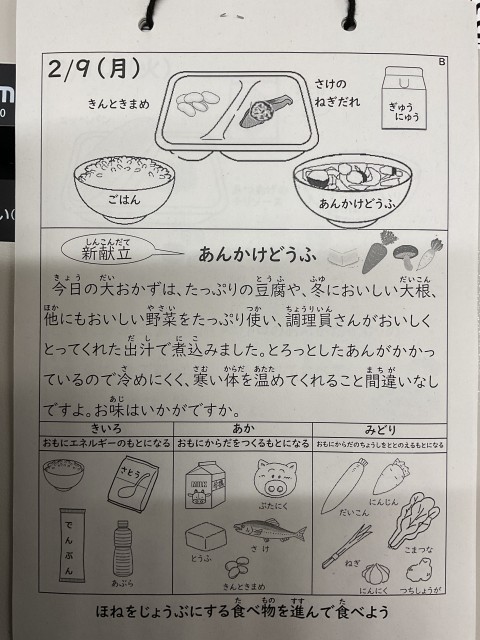 B
2/9(月)
きんときまめ
さけの
ねぎだれ
ぎゅう
にゅう
ごはん
あんかけどうふ
しんこんだて
新献立
あんかけどうふ
きょう だい とうふ ふゆ だいこん
今日の大おかずは、たっぷりの豆腐や、冬においしい大根、
ほか やさい つか ちょうりいん
他にもおいしい野菜をたっぷり使い、調理員さんがおいしく
だし にこ
とってくれた出汁で煮込みました。とろっとしたあんがかかっ
さ さむ からだ あたた まちが
ているので冷めにくく、寒い体を温めてくれること間違いなし
あじ
ですよ。お味はいかがですか。
きいろ
おもにエネルギーのもとになる
さとう
でんぷん
あぶら
あか
おもにからだをつくるもとになる
ぶたにく
とうふ
さけ
きんときまめ
みどり
おもにからだのちょうしをととのえるもとになる
だいこん
にんじん
こまつな
ねぎ
にんにく
つちしょうが
た もの すす た
ほねをじょうぶにする食べ物を進んで食べよう